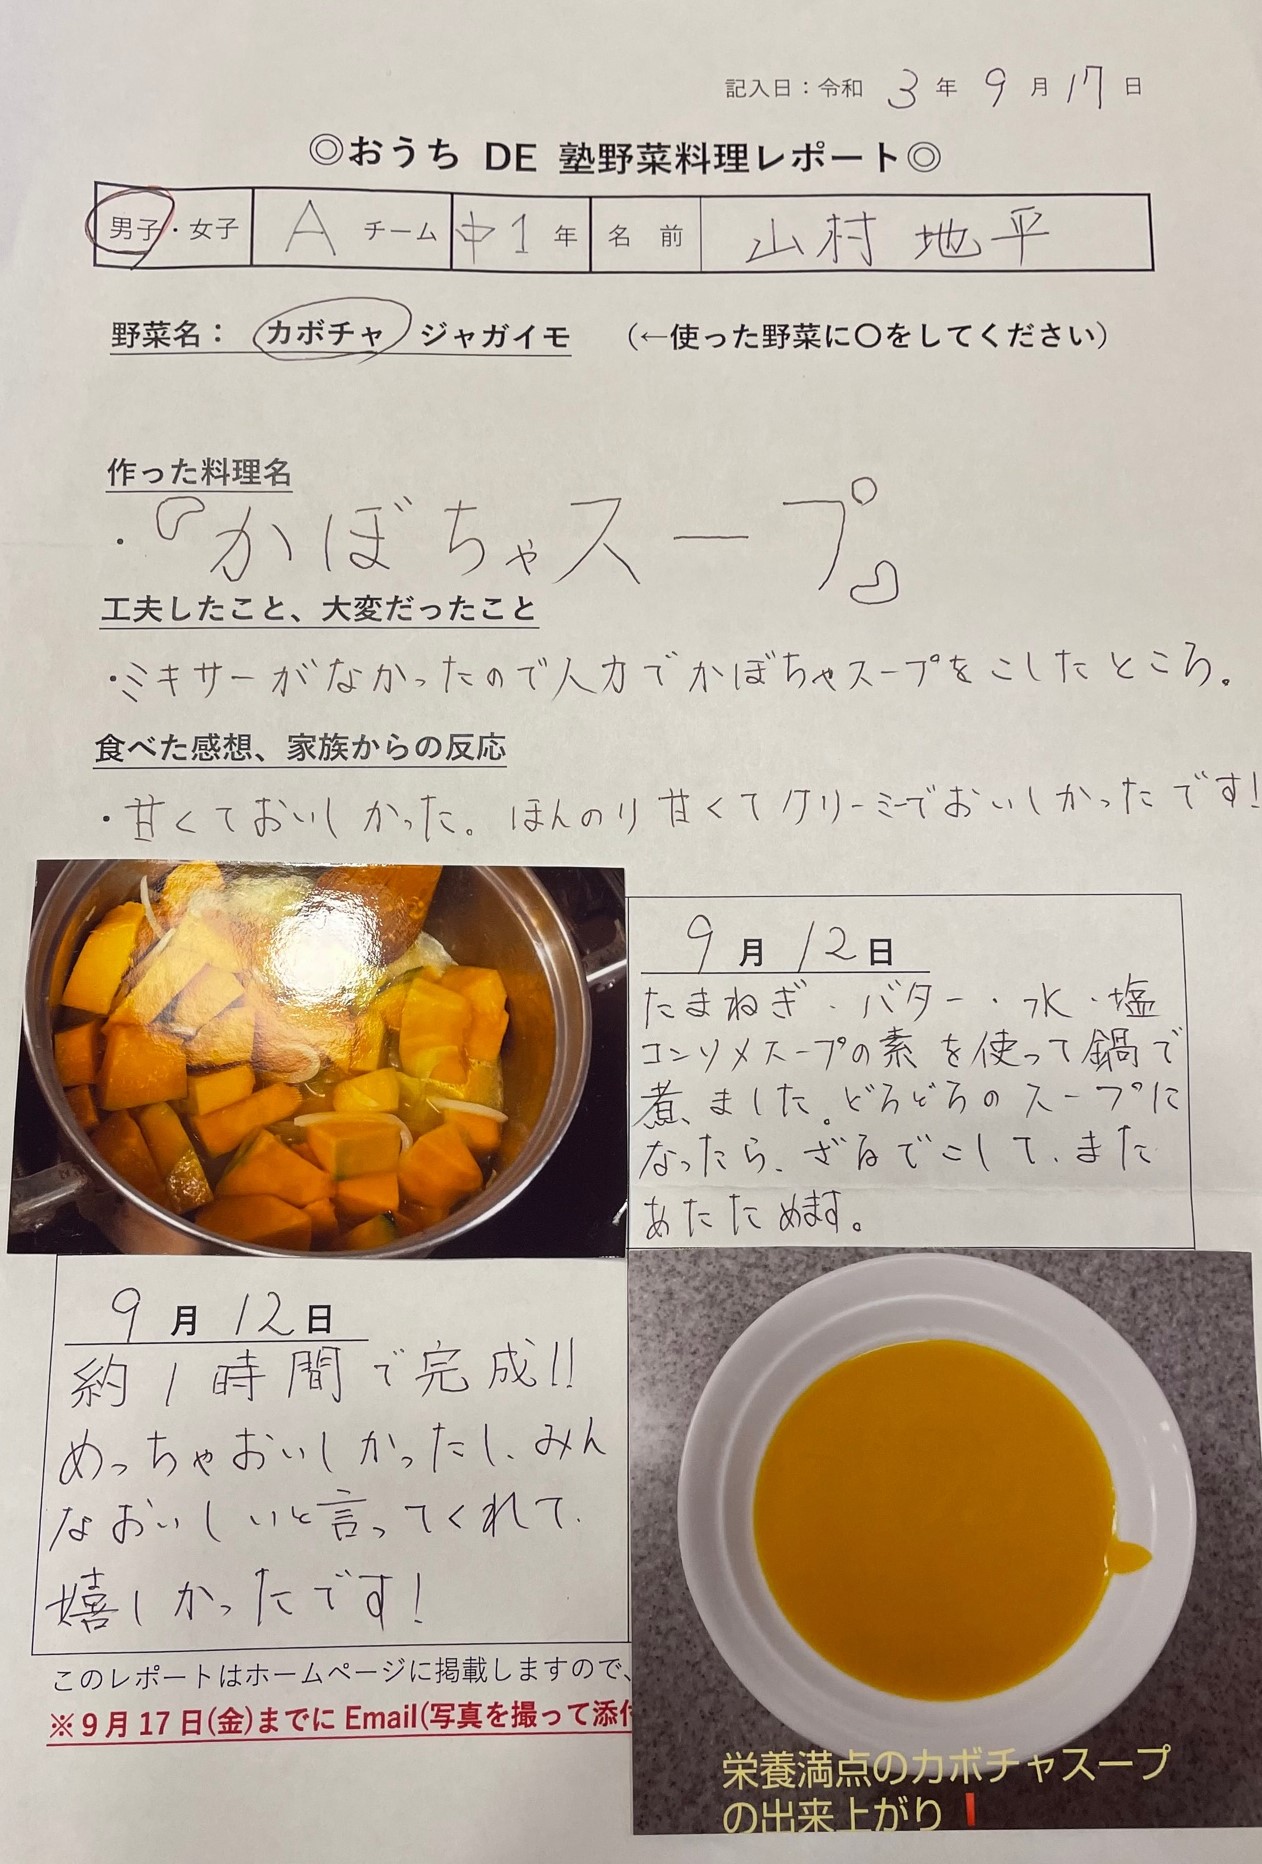 記入日：令和 3 年 9 月 17 日
◎おうち DE 塾野菜料理レポート◎
男子・女子 A チーム 中1 年 名 前 山村 地平
野菜名： カボチャ ジャガイモ （←使った野菜に〇をしてください）
作った料理名
・『かぼちゃスープ』
工夫したこと、大変だったこと
・ミキサーがなかったので人力でかぼちゃスープをこしたところ。
食べた感想、家族からの反応
・甘くておいしかった。ほんのり甘くてクリーミーでおいしかったです!
9 月 12 日
たまねぎ・バター・水・塩
コンソメスープの素を使って鍋で
煮ました。どろどろのスープに
なったら、ざるでこして、また
あたためます。
9 月 12 日
約1時間で完成!!
めっちゃおいしかったし、みん
なおいしいと言ってくれて、
嬉しかったです!
このレポートはホームページに掲載しますので、
※9月17日(金)までに Email(写真を撮って添付
栄養満点のカボチャスープ
の出来上がり❗